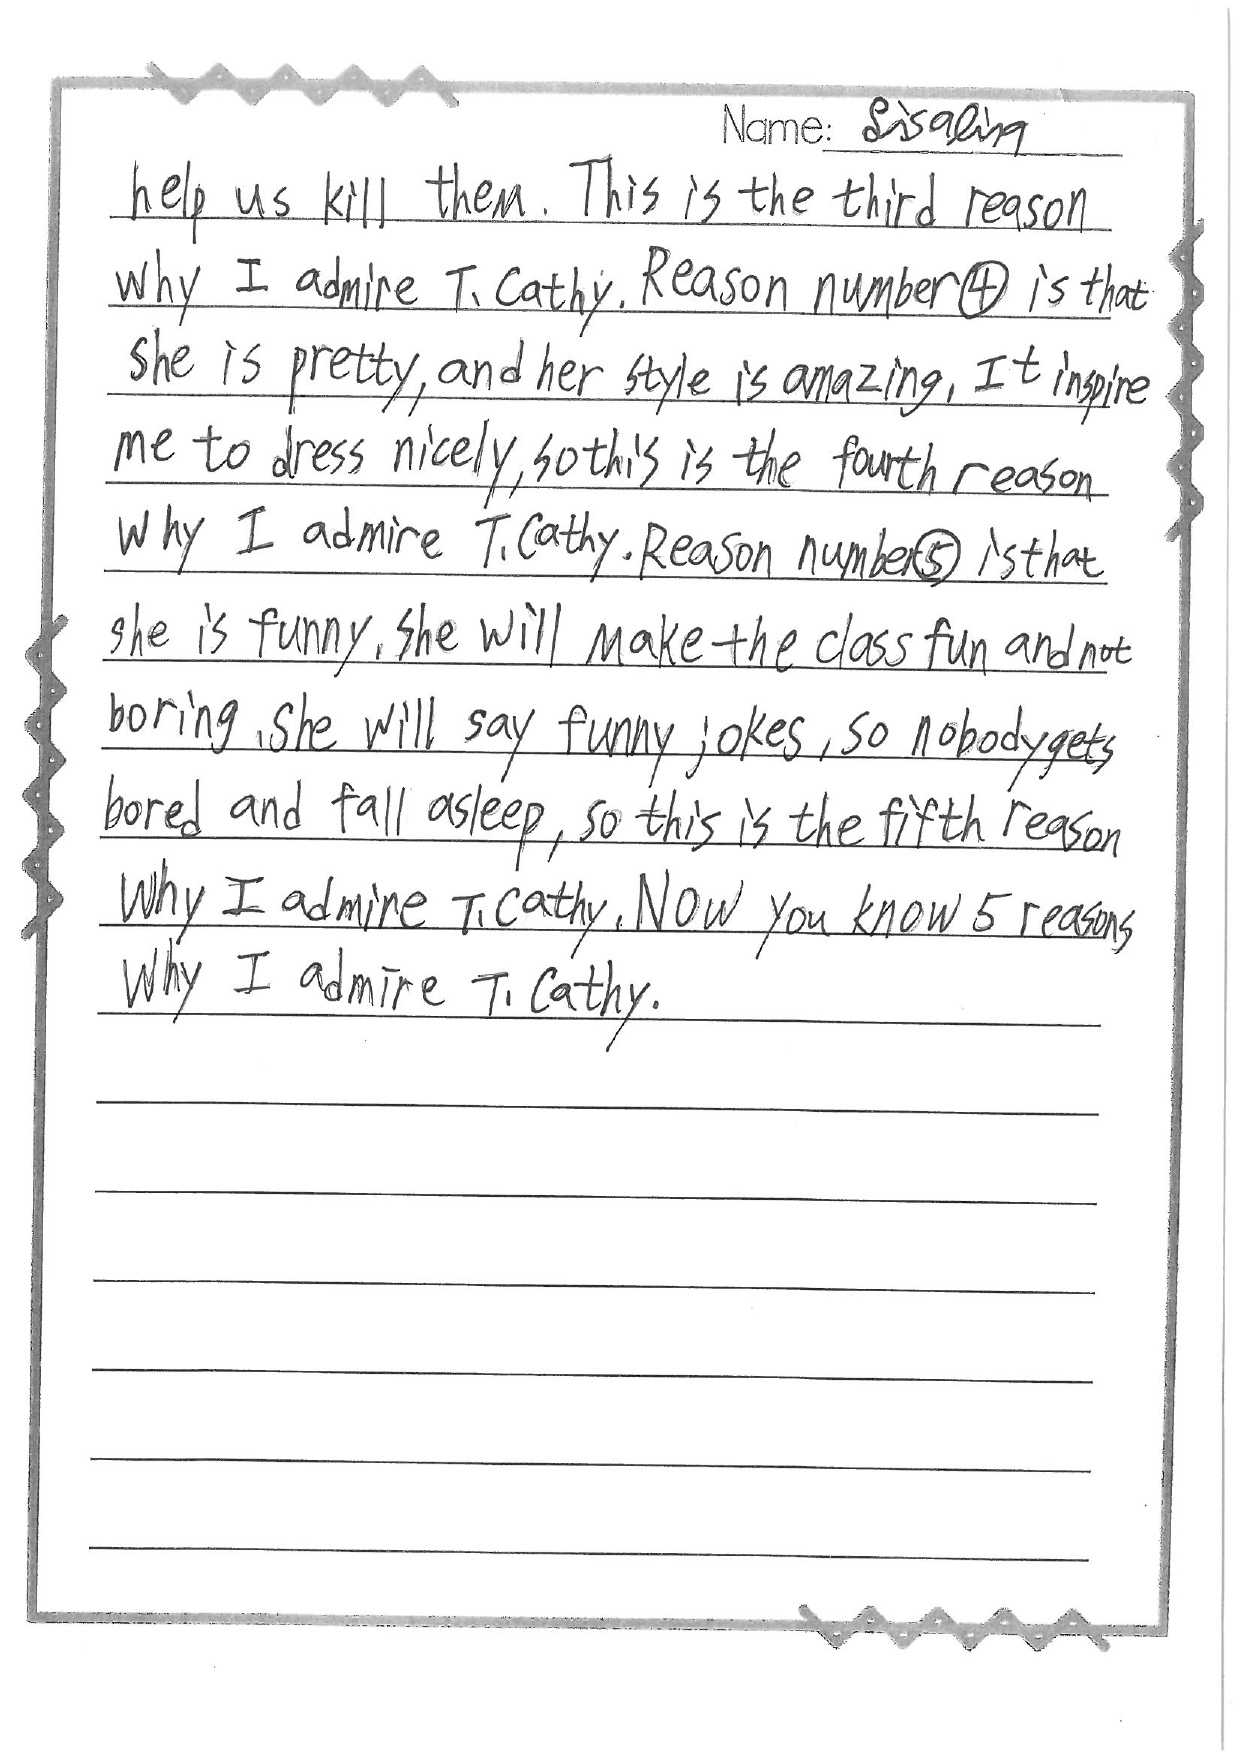 Name: Lisaling
help us kill them. This is the third reason
why I admire T. Cathy. Reason number④ is that
she is pretty, and her style is amazing. It inspire
me to dress nicely, so this is the fourth reason
why I admire T. Cathy. Reason number⑤ is that
she is funny. She will make the class fun and not
boring. She will say funny jokes, so nobody gets
bored and fall asleep, so this is the fifth reason
why I admire T. Cathy. Now you know 5 reasons
why I admire T. Cathy.